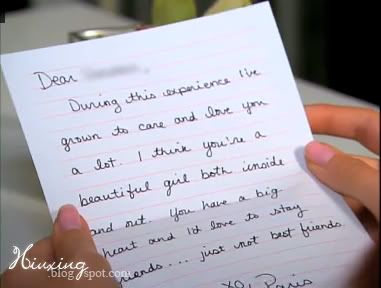 Dear
During this experience I've
grown to care and love you
a lot. I think you're a
beautiful girl both inside
and out. You have a big
heart and I'd love to stay
friends... just not best friends.
Paris
Xiuxing
.blogspot.com